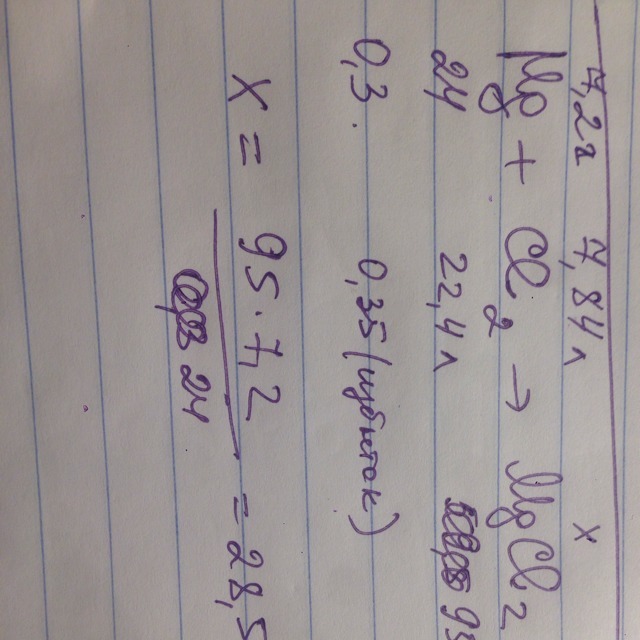 7,2г 7,84л x
Mg + Cl2 → MgCl2
24 22,4л 95
0,3 0,35 (избыток)
x = 95·7,2 = 28,5
24